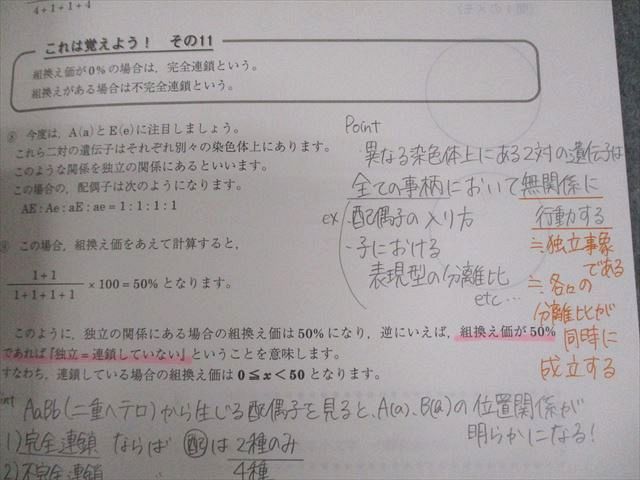 4+1+1+4
これは覚えよう! その11
組換え価が0%の場合は,完全連鎖という。
組換えがある場合は不完全連鎖という。
今度は,A(a)とE(e)に注目しましょう。
これら二対の遺伝子はそれぞれ別々の染色体上にあります。
このような関係を独立の関係にあるといいます。
この場合の,配偶子は次のようになります。
AE:Ae:aE:ae=1:1:1:1
この場合,組換え価をあえて計算すると,
1+1
1+1+1+1
×100=50%となります。
このように,独立の関係にある場合の組換え価は50%になり,逆にいえば,組換え価が50%
であれば「独立=連鎖していない」ということを意味します。
すなわち,連鎖している場合の組換え価は0≦x<50となります。
Point
異なる染色体上にある2対の遺伝子は
全ての事柄において無関係に
行動する
ex
・配偶子の入り方
・子における
表現型の分離比
etc…
≒独立事象
である
≒各々の
分離比が
同時に
成立する
AaBb(二重ヘテロ)から生じる配偶子を見ると、A(a)、B(b)の位置関係が
明らかになる!
1)完全連鎖 ならば 配は2種のみ
2)不完全連鎖 4種